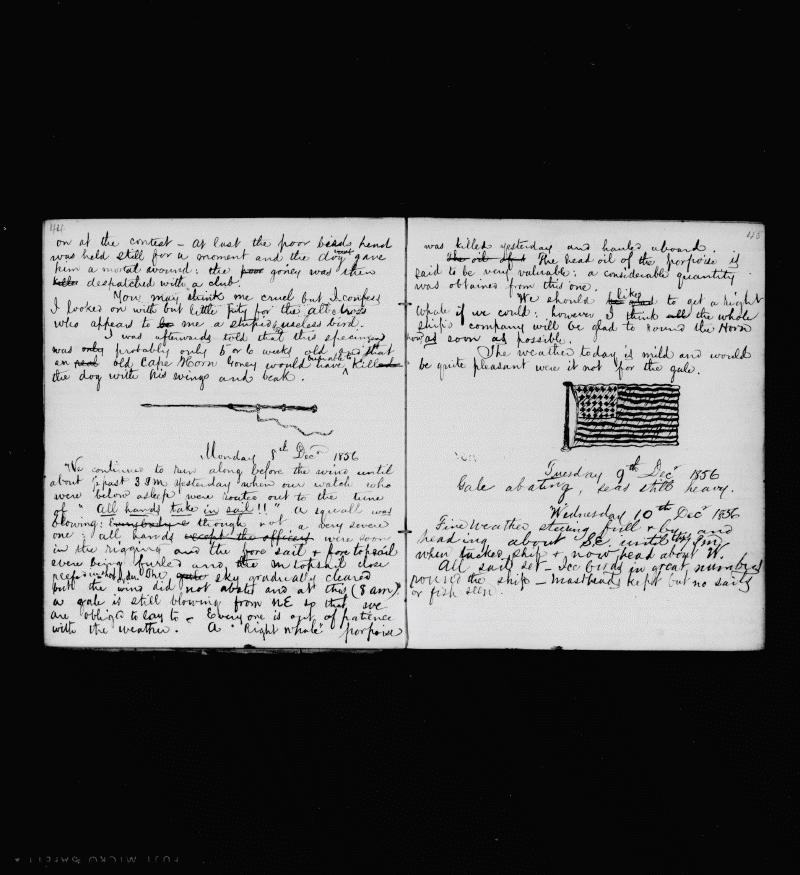 44
on at the contest – at last the poor birds head
was held still for a moment and the dog gave
him a mortal wound: the poor goney was then
killed despatched with a club.
You may think me cruel but I confess
I looked on with but little pity for the albatross
who appears to be me a stupid useless bird.
I was afterwards told that this specimen
was only probably only 5 or 6 weeks old and that
an real old Cape Horn Goney would have killed
the dog with his wings and beak.
Monday 8th Decr 1856
We continued to run along before the wind until
about ½ past 3 PM yesterday when our watch who
were below asleep were routed out to the tune
of "All hands take in sail!!" A squall was
blowing: Everybody though not a very severe
one: all hands except the officers were soon
in the rigging and the fore sail & foretopsail
were being furled and the m topsail close
reefed. The quite sky gradually cleared
but the wind did not abate and at this (8 am)
a gale is still blowing from NE so that we
are obliged to lay to – Every one is out of patience
with the weather. A "Right Whale" porpoise
45
was killed yesterday and hauled aboard.
The oil of the The head oil of the porpoise is
said to be very valuable: a considerable quantity
was obtained from this one.
We should like to get a Right
Whale if we could: however I think all the whole
ship's company will be glad to round the Horn
now as soon as possible.
The weather today is mild and would
be quite pleasant were it not for the gale.
Tuesday 9th Decr 1856
Gale abating, seas still heavy.
Wednesday 10th Decr 1856
Fine Weather steering full & by and
heading about S.E. until this PM
when tacked ship & now head about W.
All sail set – See birds in great numbers
round the ship – mastheads kept but no sails
or fish seen.